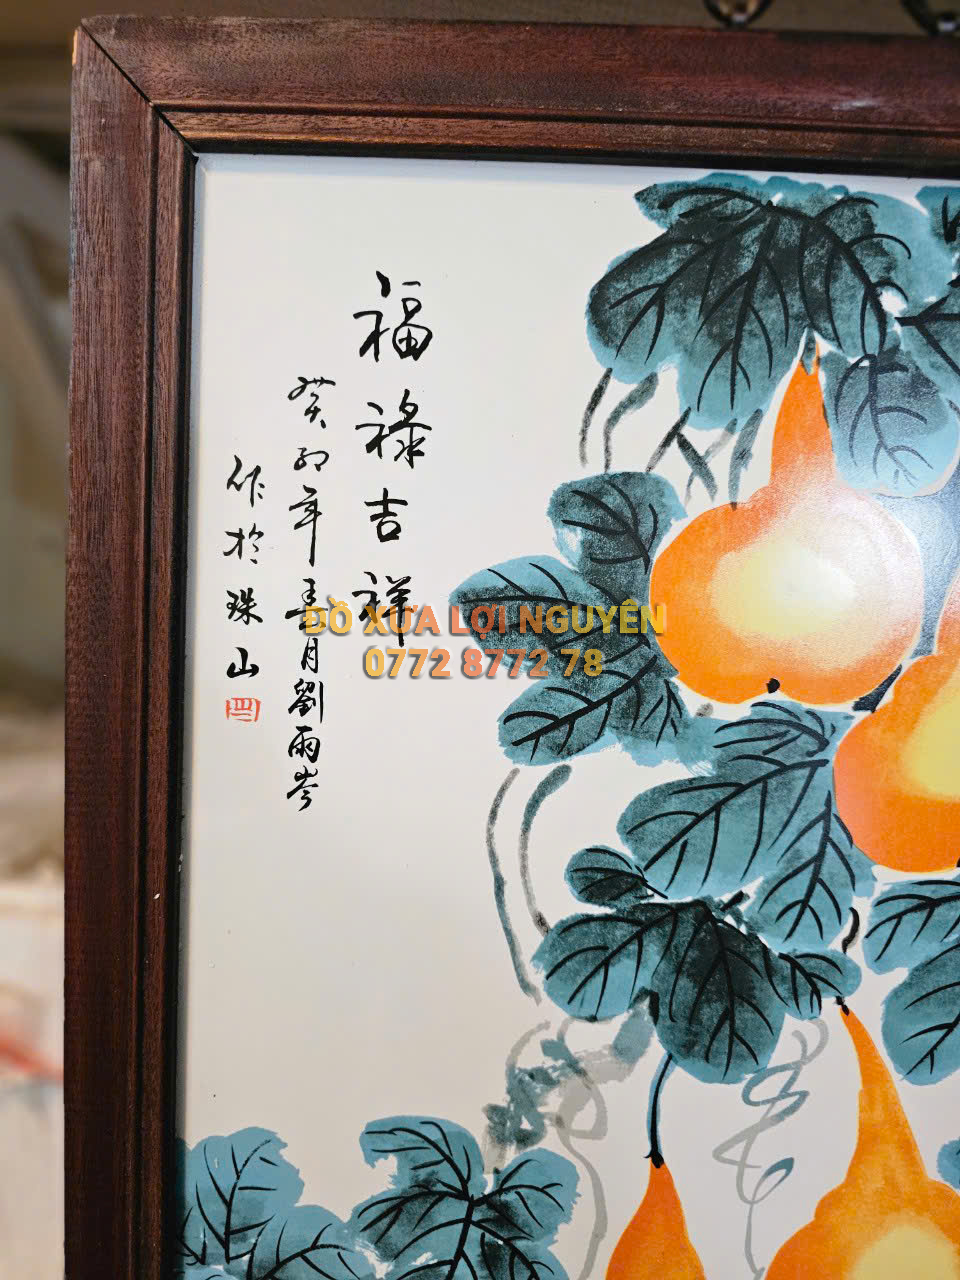 福祿吉祥
癸卯年春月劉雨岑
作於珠山
ĐỒ XƯA LỢI NGUYÊN
0772 8772 78